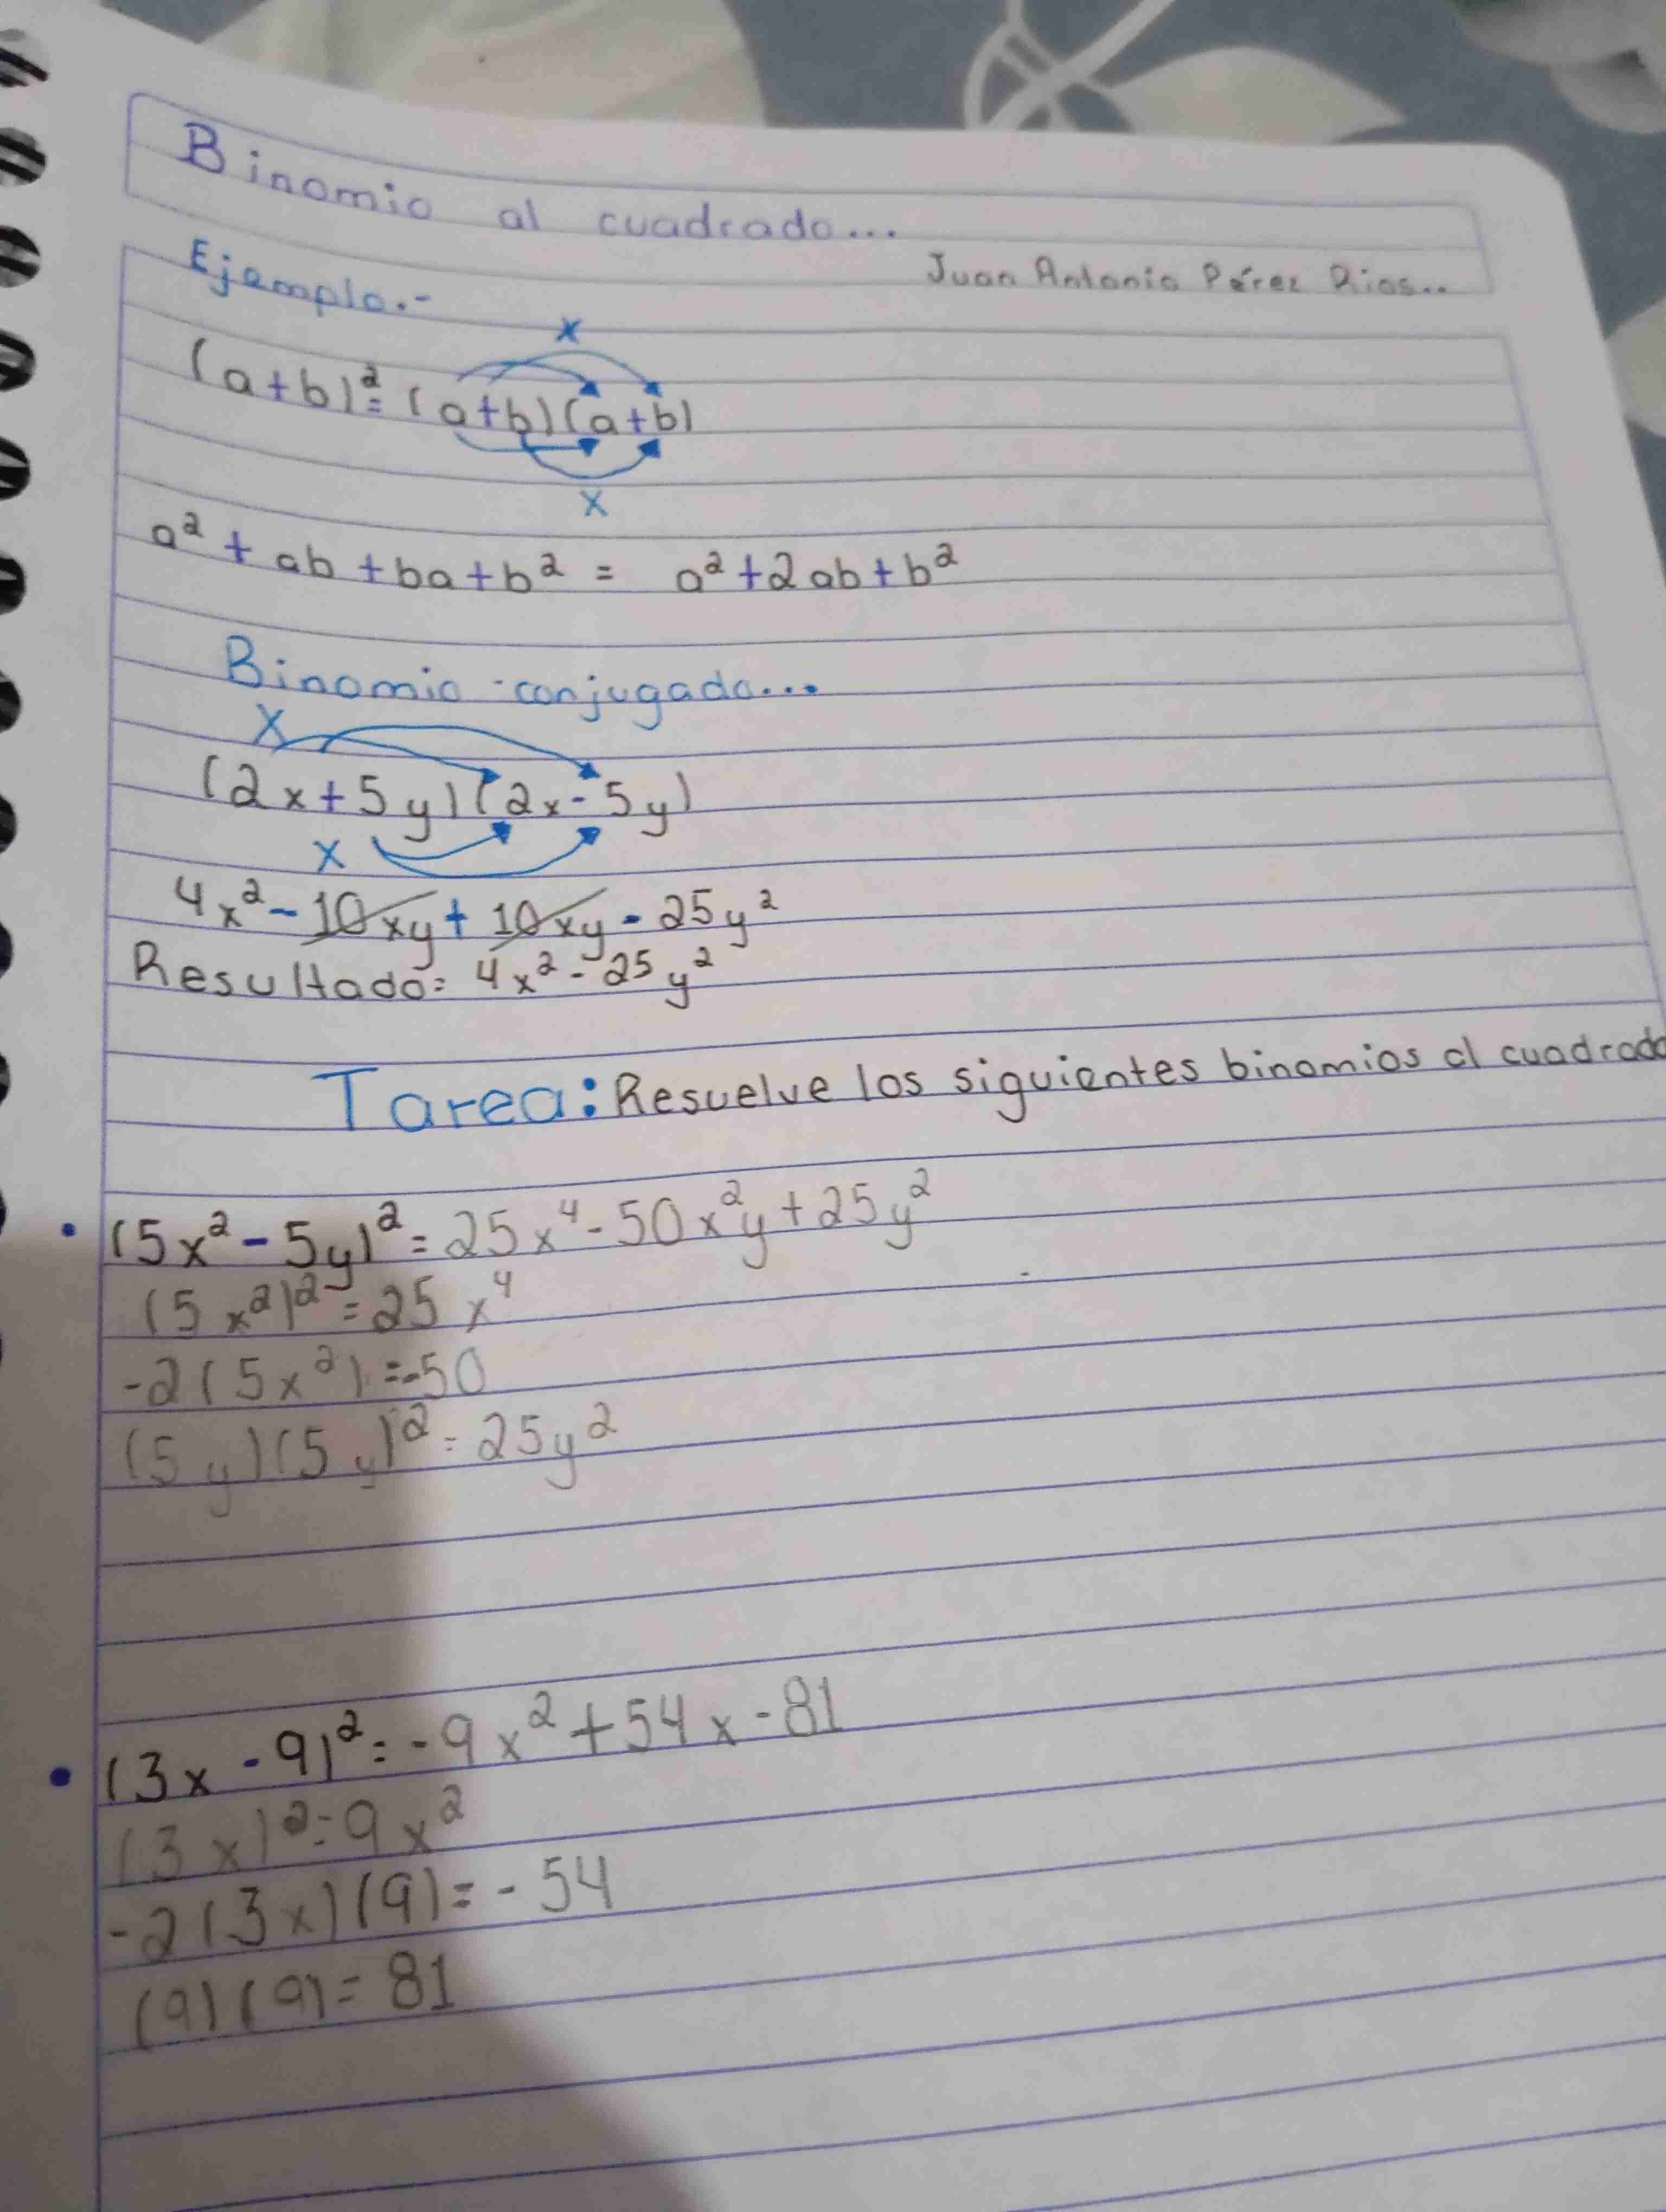 Binomio al cuadrado...
Juan Antonio Pérez Rios..
Ejemplo.-
x
(a+b)²=(a+b)(a+b)
x
a² + ab + ba + b² = a² + 2ab + b²
Binomio conjugado...
x
(2x+5y)(2x-5y)
x
4x² - 10xy + 10xy - 25y²
Resultado: 4x² - 25y²
Tarea: Resuelve los siguientes binomios al cuadrado
• (5x² - 5y)² = 25x⁴ - 50x²y + 25y²
(5x²)² = 25x⁴
-2(5x²) = -50
(5y)(5y)² = 25y²
• (3x - 9)² = -9x² + 54x - 81
(3x)² = 9x²
-2(3x)(9) = -54
(9)(9) = 81